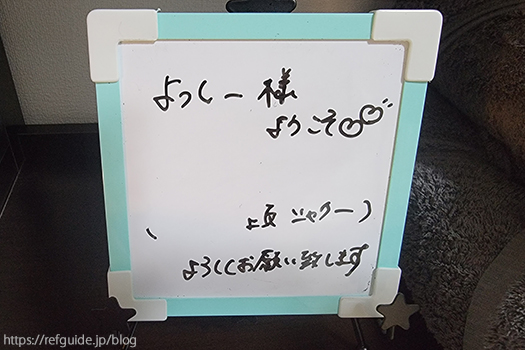 よっしー 様
ようこそ
よろしくお願い致します
https://refguide.jp/blog